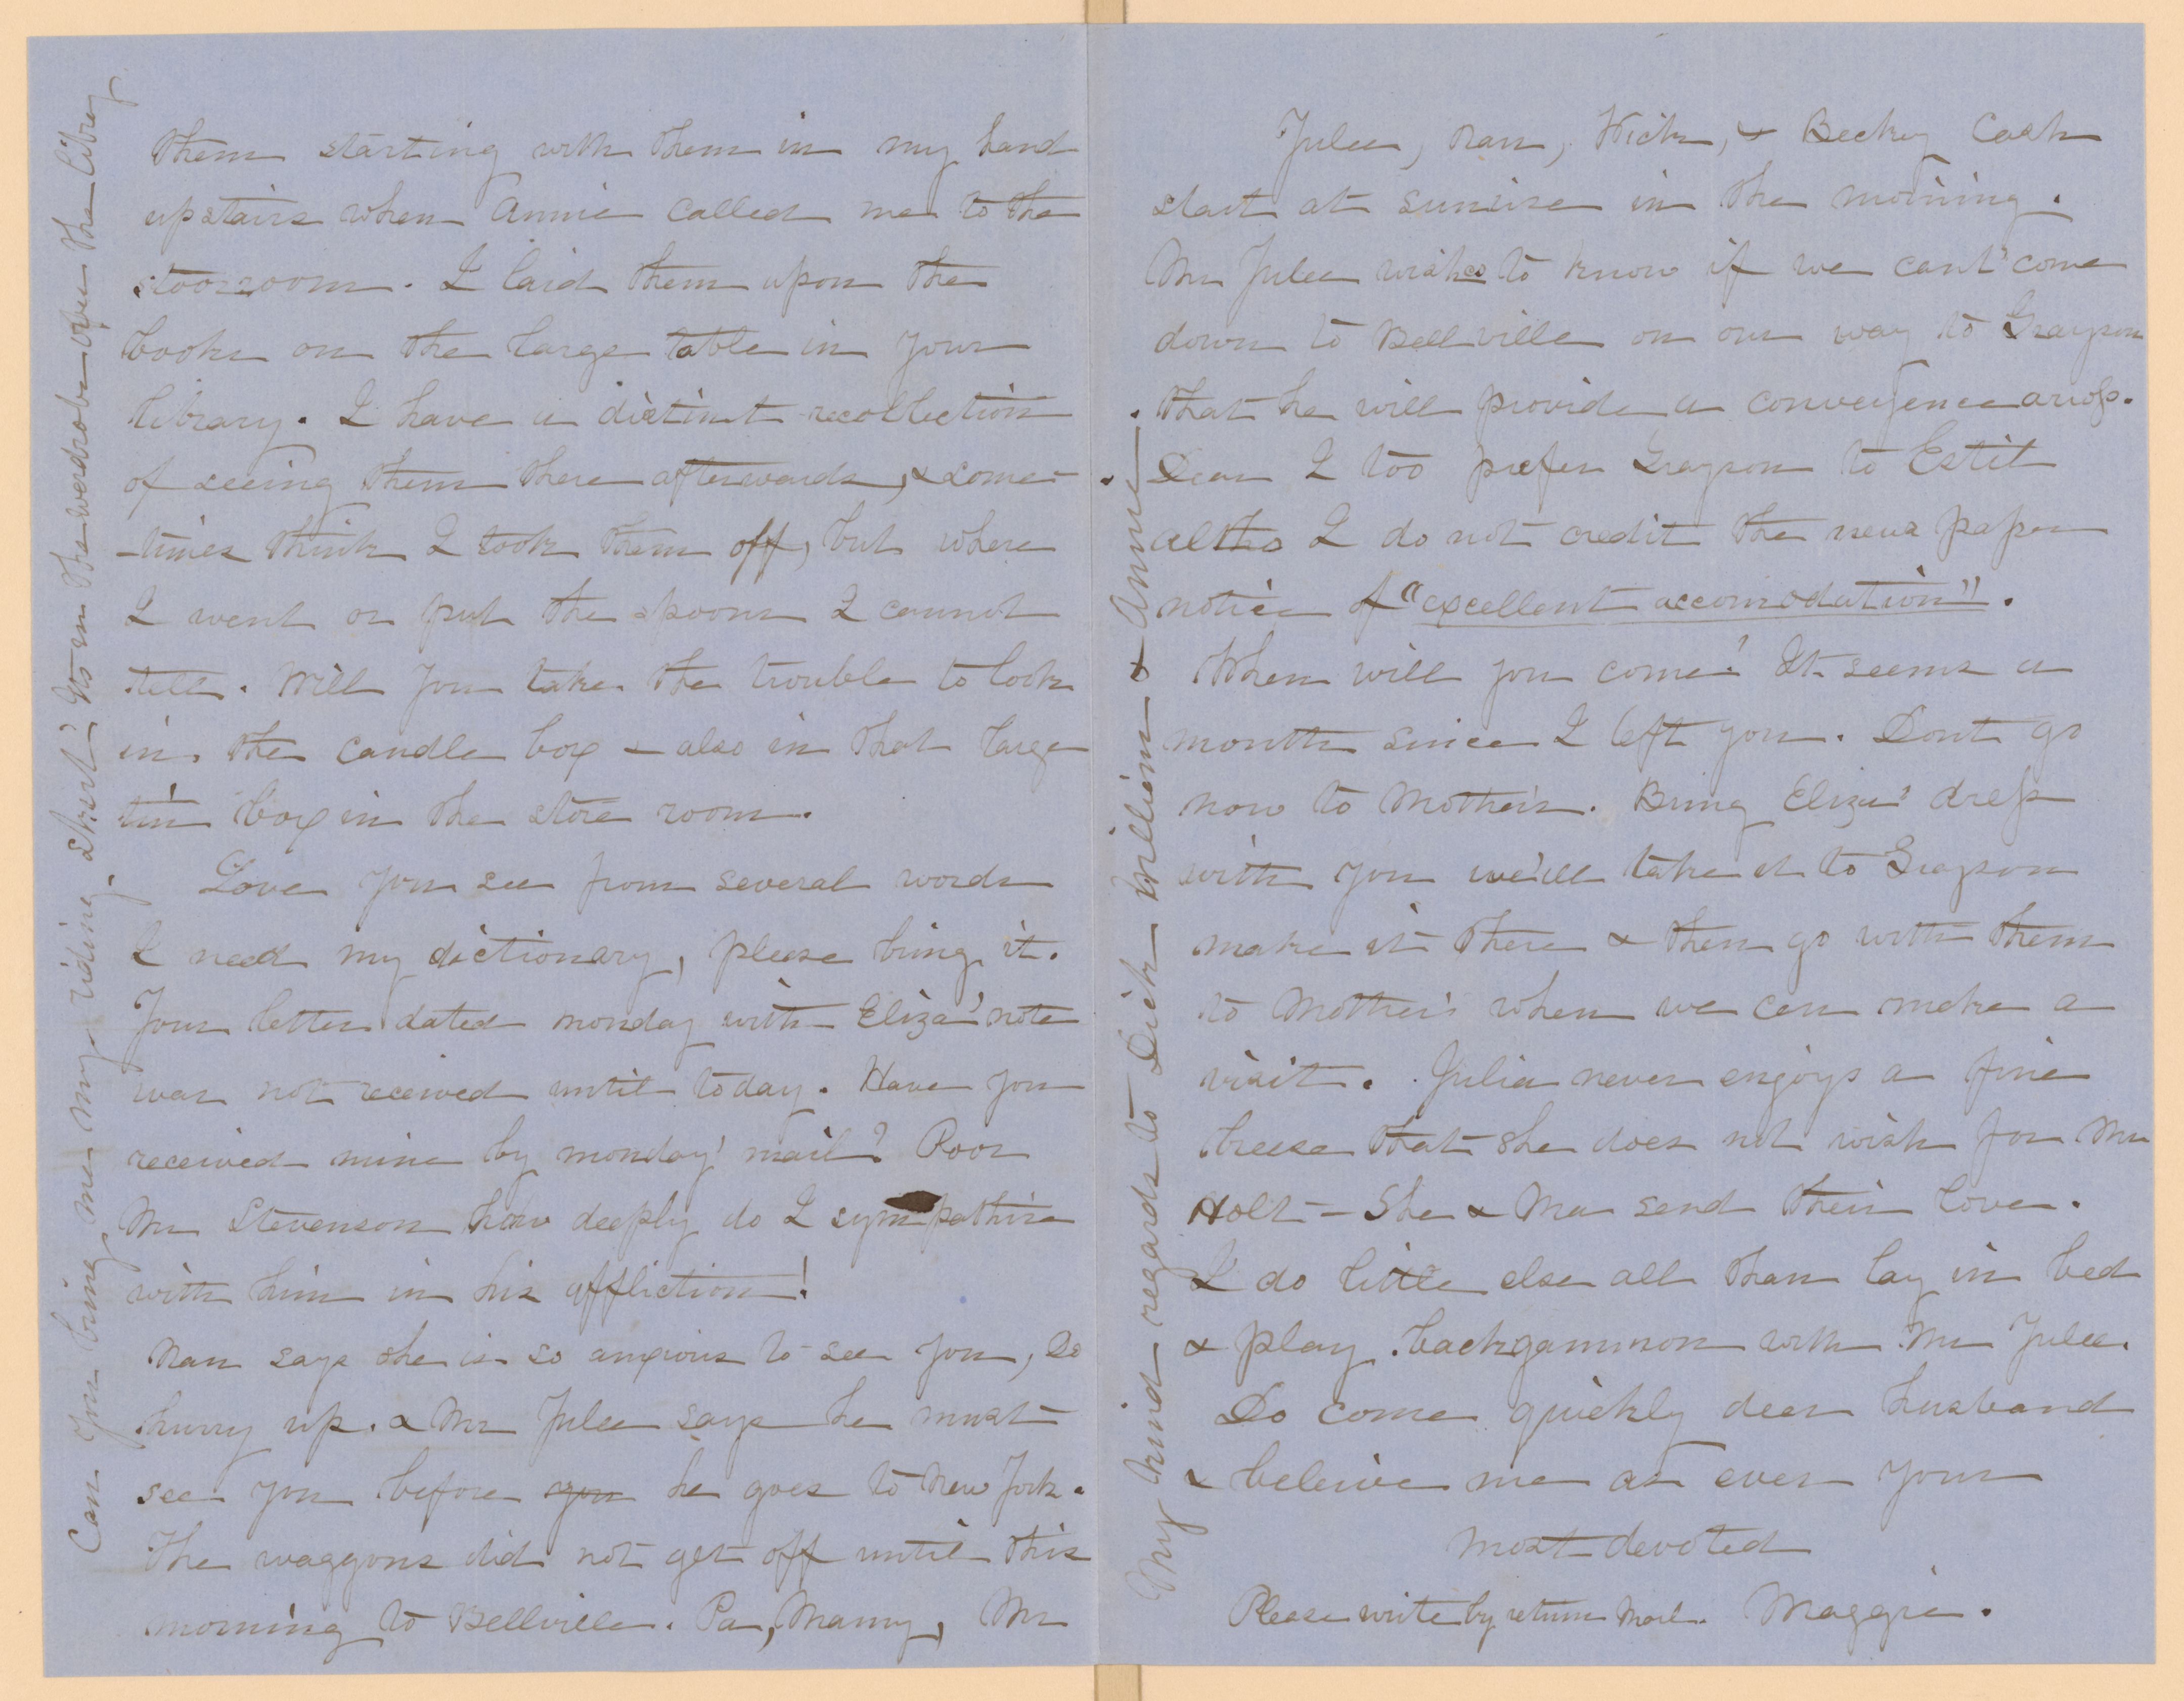 them starting with them in my hand
upstairs when Annie called me to the
stooroom. I laid them upon the
books on the large table in your
library. I have a distinct recollection
of seeing them there afterwards, & some-
-times think I took them off, but where
I went or put the spoons I cannot
tell. Will you take the trouble to look
in the candle box – also in that large
tin box in the store room.
Love you see from several words
I need my dictionary, please bring it.
Your letter dated monday with Eliza' note
was not received until today. Have you
received mine by monday' mail? Poor
Mr Stevenson how deeply do I sympathise
with him in his affliction!
Nan says she is so anxious to see you, Do
hurry up. & Mr Julee says he must
see you before you he goes to New York.
The waggons did not get off until this
morning to Bellville. Pa, Mamy, Mr
Can you bring me my riding skirt? Its in the werdrobe over the library
Julee, Nan, Wick, & Becky Cash
start at sunrise in the morning.
Mr Julee wishes to know if we cant come
down to Bellville on our way to Grayson
that he will provide a conveyence across.
Dear I too prefer Grayson to Estil
altho I do not credit the news paper
notice of "excellent accomodation".
When will you come? It seems a
month since I left you. Dont go
now to Mother's. Bring Eliza' dress
with you we'll take it to Grayson
make it there & then go with them
to Mother's when we can make a
visit. Julia never enjoys a fine
breese that she does not wish for Mr
Holt – She & Ma send their love.
I do little else all than lay in bed
& play backgammon with Mr Julee.
Do come quickly dear husband
& beleive me as ever your
most devoted
Please write by return Mail. Maggie.
My kind regards to Dick William & Annie.